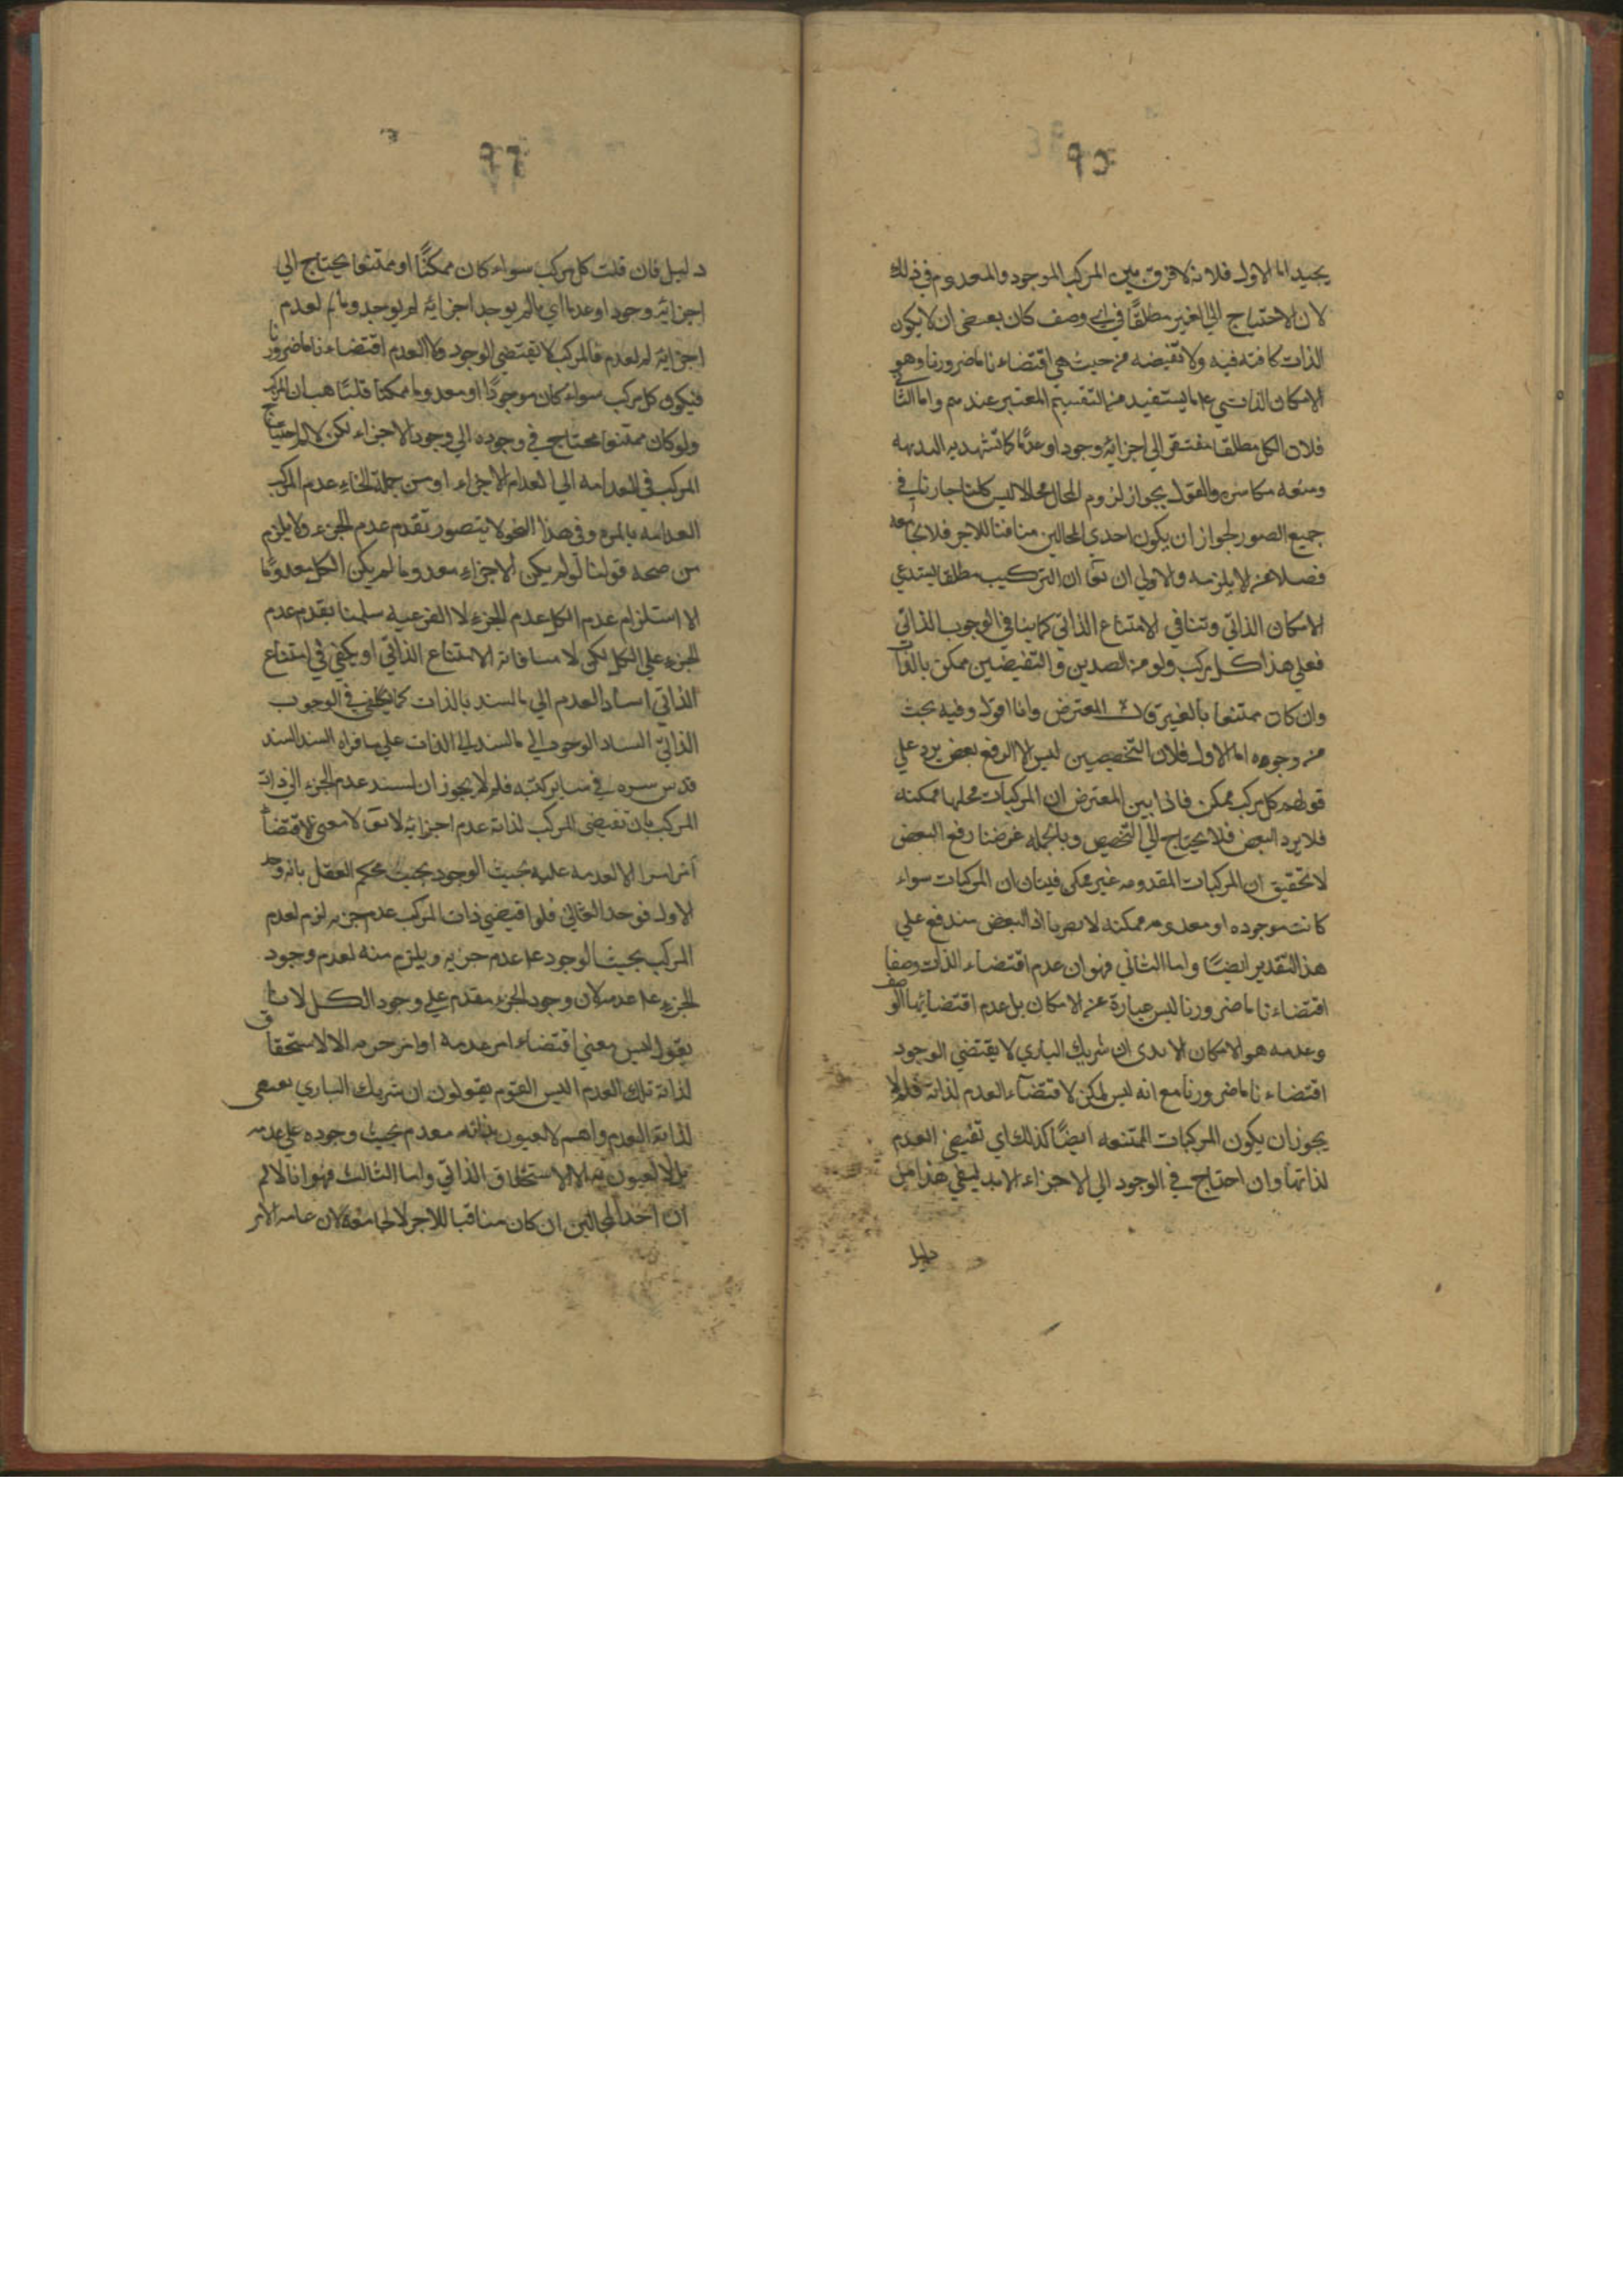 ٩٥
يجيد اما الاول فلانه لا فرق بين المركب الموجود والمعدوم في ذلك
لان الاحتياج الى الغير مطلقًا في اي وصف كان بعضى ان لا يكون
الذات كافته فيه ولا نقيضه من حيث هي اقتضاء ناما ضروريا وهو
الامكان الذاتي على ما يستفيد من التقسيم المعتبر عندهم واما الثا
فلان الكل مطلقا مفتقر الى اجزائه وجودا وعدمًا كما تشهد به البديهه
ومنعه مكابره والقول بجواز لزوم المحال محالا ليس كليا جاريا في
جميع الصور لجواز ان يكون احدى المحالين منافيا للاخر فلا يجامعه
فضلا عن لا يلزمه والاولى ان يقا ان التركيب مطلقا يستدعي
الامكان الذاتي وتنافي الامتناع الذاتي كما ينافي الوجوب الذاتي
فعلى هذا كل مركب ولو من الضدين والنقيضين ممكن بالذات
وان كان ممتنعا بالغير المعترض وانا اقول وفيه بحث
من وجوه اما الاول فلان التخصيص ليس الا لرفع بعض يرد على
قولهم كل مركب ممكن فاذا بين المعترض ان المركبات محلها ممكنه
فلا يرد البعض فلا يحتاج الى التخصيص وبالجمله غرضنا رفع البعض
لا تحقيق ان المركبات المعدومه غير ممكن ان المركبات سواء
كانت موجوده او معدومه ممكنه لا يضرنا اذ البعض مندفع على
هذا التقدير ايضًا واما الثاني فهو ان عدم اقتضاء الذات وصفا
اقتضاء ناما ضروريا ليس عبارة عن الامكان بل عدم اقتضائها الوصف
وعدمه هو الامكان الا يرى ان شريك الباري لا يقتضي الوجود
اقتضاء ناما ضروريا مع انه ليس لممكن لاقتضاء العدم لذاته فلم لا
يجوز ان يكون المركبات الممتنعه ايضًا كذلك اي تقتضي العدم
لذاتها وان احتاج في الوجود الى الاجزاء لابد لنفي هذا من
دليل
٩٦
دليل فان قلت كل مركب سواء كان ممكنًا او ممتنعا يحتاج الى
اجزائه وجودا وعدما اي مالم يوجد اجزائه لم يوجد وما لم لعدم
اجزائه لم لعدم فالمركب لا يقتضي الوجود ولا العدم اقتضاء ناما ضروريا
فيكون كل مركب سواء كان موجودًا او معدوما ممكنا قلنا هب ان المركب
ولو كان ممتنعا محتاج في وجوده الى وجود الاجزاء لكن لا لم احتياج
المركب في انعدامه الى انعدام الاجزاء او من جملة انحاء عدم المركب
انعدامه بالمره وفي هذا النحو لا يتصور تقدم عدم الجزء ولا يلزم
من صحه قولنا لو لم يكن الاجزاء معدوما لم يكن الكل معدومًا
الا استلزام عدم الكل عدم الجزء لا الفرعيه سلمنا تقدم عدم
الجزء على الكل لكن لا منافاته الامتناع الذاتي او يكفي في امتناع
الذاتي اسناد العدم الى مالسند بالذات كما يكفي في الوجوب
الذاتي اسناد الوجوب الى مالسند الى الذات على ما قراه السيد السند
قدس سره في سائر كتبه فلم لا يجوز ان لسند عدم الجزء الى ذات
المركب بان تقيضى المركب لذاته عدم اجزائه لا يقا لا معنى لاقتضاء
امر امرا الا لعدمه عليه بحيث الوجود بحيث يحكم العقل بانه وجد
الاول فوجد الثاني فلو اقتضي ذات المركب عدم جزءه لزم لعدم
المركب بحيث الوجود على عدم جزءه ويلزم منه لعدم وجود
الجزء على عدمه لان وجود الجزء مقدم على وجود الكل لا
يقول ليس معنى اقتضاء امر عدمه او امر جزءه الا الاستحقاق
لذاته تلك العدم اليس القوم يقولون ان شريك الباري
لذاته العدم وانهم لا لعنون بذاته معدم بحيث وجوده على عدمه
بل لا لعنون به الا الاستحقاق الذاتي واما الثالث فهو انا لا لم
ان احد المحالين ان كان منافيا للاخر لا لجامعه لان عامه الامر